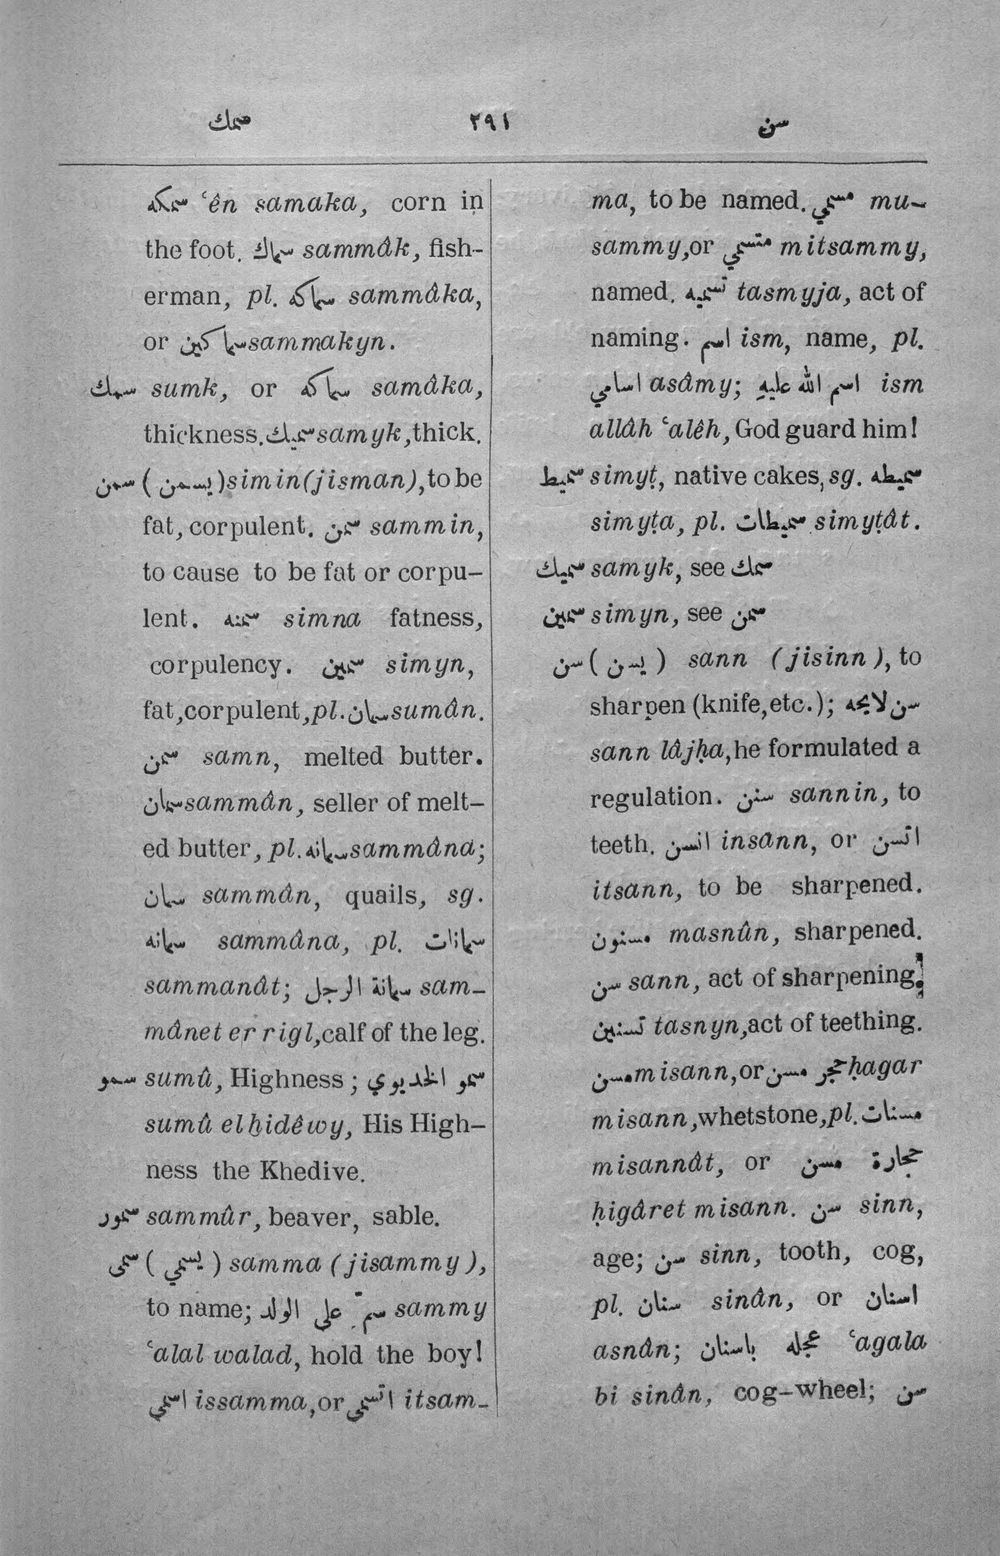 سمك ٢٩١ سن
سمكه ʿên samaka, corn in
the foot. سماك sammâk, fish-
erman, pl. سماكه sammâka,
or سماكين sammakyn.
سمك sumk, or سماكه samâka,
thickness. سميك samyk, thick.
سمن (يسمن) simin (jisman), to be
fat, corpulent. سمن sammin,
to cause to be fat or corpu-
lent. سمنه simna fatness,
corpulency. سمين simyn,
fat, corpulent, pl. سمان sumân.
سمن samn, melted butter.
سمان sammân, seller of melt-
ed butter, pl. سمانه sammâna;
سمان sammân, quails, sg.
سمانه sammâna, pl. سمانات
sammanât; سمانة الرجل sam-
mânet er rigl, calf of the leg.
سمو sumû, Highness; سمو الخديوي
sumû elḫidêwy, His High-
ness the Khedive.
سمور sammûr, beaver, sable.
سمى (يسمي) samma (jisammy),
to name; سمّ على الولد sammy
ʿalal walad, hold the boy!
اسمي issamma, or اتسمى itsam-
ma, to be named. مسمي mu-
sammy, or متسمي mitsammy,
named. تسميه tasmyja, act of
naming. اسم ism, name, pl.
اسامي asâmy; اسم الله عليهِ ism
allâh ʿalêh, God guard him!
سميط simyṭ, native cakes, sg. سميطه
simyṭa, pl. سميطات simyṭât.
سميك samyk, see سمك
سمين simyn, see سمن
سن (يسن) sann (jisinn), to
sharpen (knife, etc.); سن لايحه
sann lâjḥa, he formulated a
regulation. سنن sannin, to
teeth. انسن insann, or اتسن
itsann, to be sharpened.
مسنون masnûn, sharpened.
سن sann, act of sharpening.
تسنين tasnyn, act of teething.
مسن misann, or حجر مسن ḥagar
misann, whetstone, pl. مسنات
misannât, or حجارة مسن
ḥigâret misann. سن sinn,
age; سن sinn, tooth, cog,
pl. سنان sinân, or اسنان
asnân; عجله باسنان ʿagala
bi sinân, cog-wheel; سن